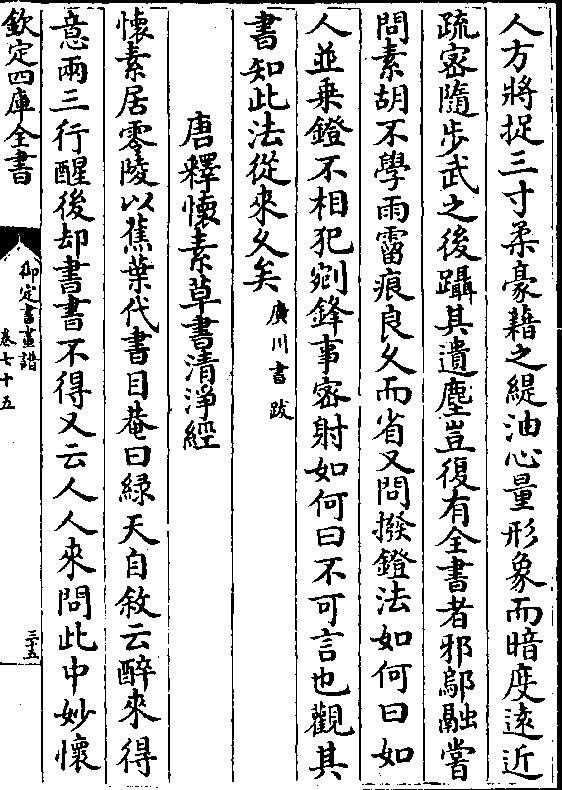 人方將捉三寸柔豪藉之緹油心量形象而暗度遠近
疏密隨步武之後躡其遺塵豈復有全書者邪鄔融嘗
問素胡不學雨霤痕良久而省又問撥鐙法如何曰如
人並乗鐙不相犯剜鋒事密射如何曰不可言也觀其
書知此法從來久矣 廣川書跋
唐釋懷素草書清浄經
懷素居零陵以蕉葉代書目菴曰緑天自敘云醉來得
意兩三行醒後却書書不得又云人人來問此中妙懷
欽定四庫全書
御定書畫譜
卷七十五
三五